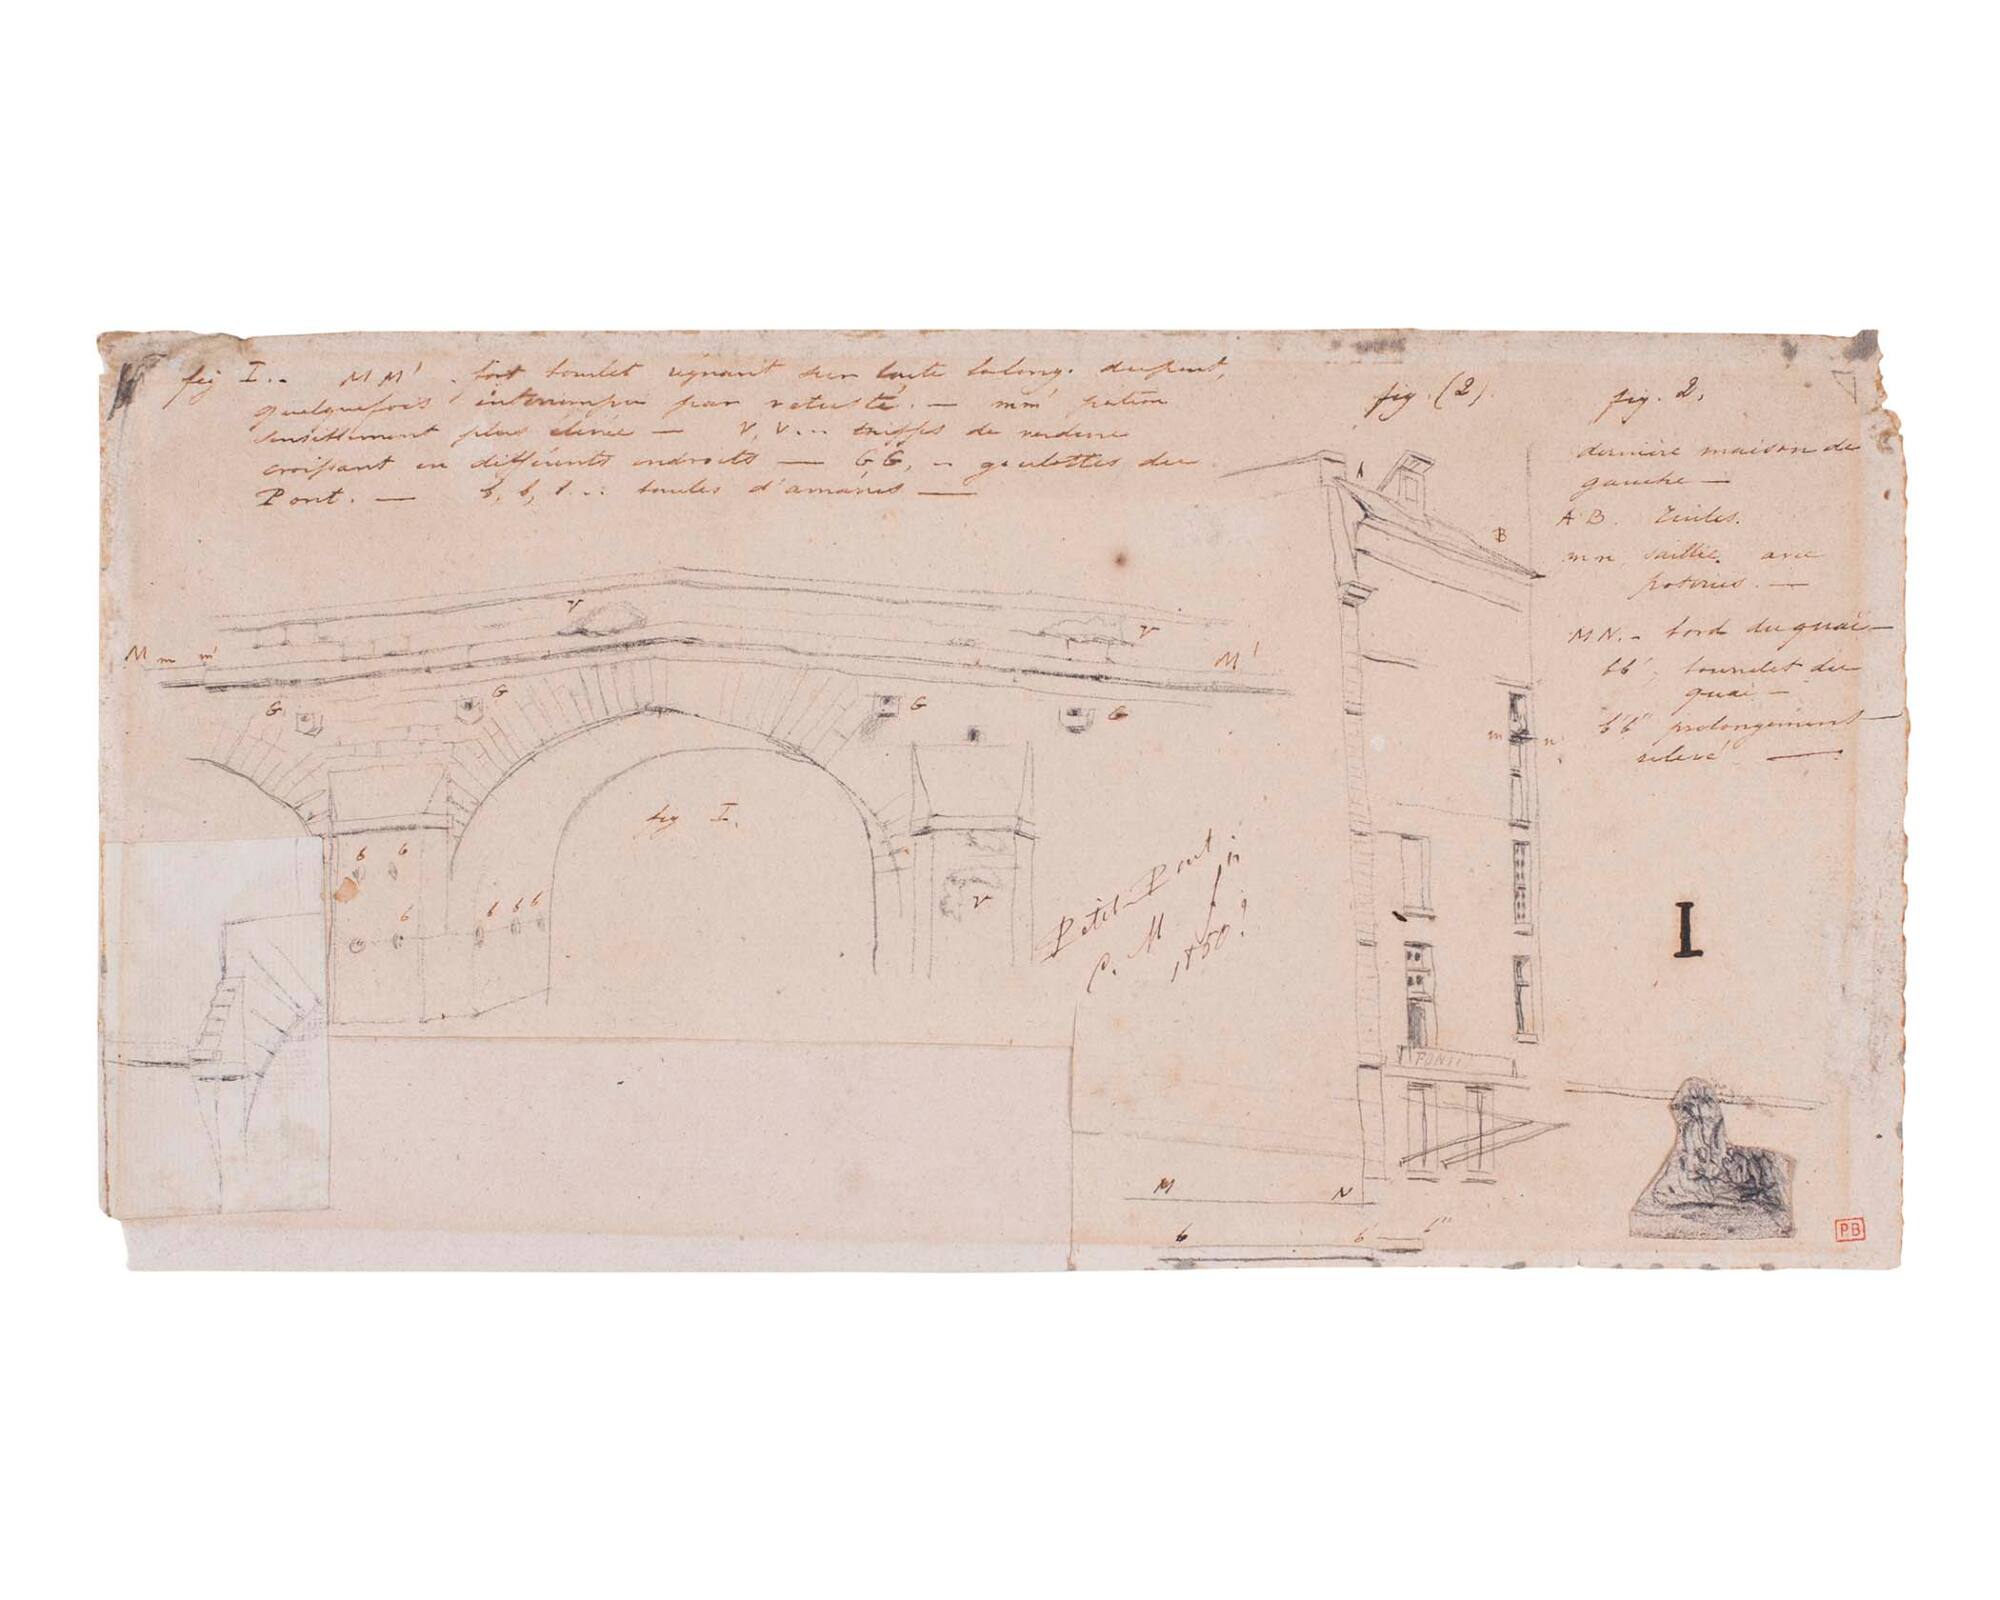 fig I.. MM' . fort boulet régnant sur toute la long. du pont,
quelquefois interrompu par vetusté. — mm'
sensiblement plus élevée — V, V... touffes de verdure
croissant en différents endroits — G G, .. goulottes du
Pont. — b, b, b... boules d'amares —
fig. (2).
fig. 2.
dernière maison de
gauche —
A B. Tuiles.
m n saillie. avec
poteries. —
M N. - bord du quai —
bb', bourrelet du
quai —
b'b" prolongement
relevé —
A
B
V
V
M m m'
M'
G
G
G
G
m n
fig I.
b b
b
b b b
V
Petit-Pont
C. M
1850?
I
PONTI
M N
b b' b"
PB